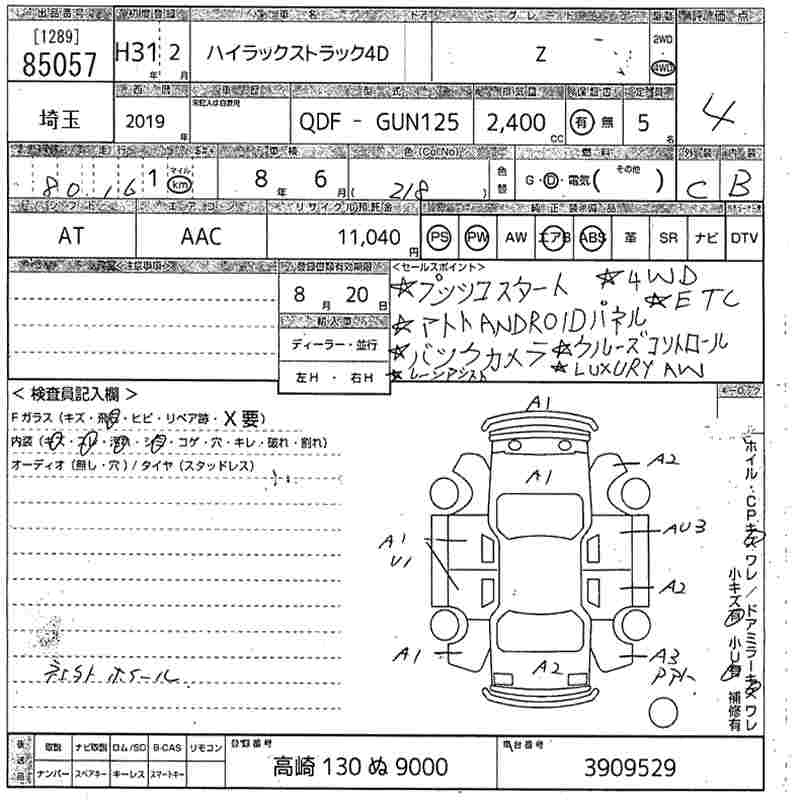 出品番号 初度登録 車名 ドア グレード 駆動 評価点
[1289]
85057 H31 年 2 月 ハイラックストラック4D Z 2WD・4WD 4
西暦 車歴 型式 排気量 保証書 定員
未記入は自家用
埼玉 2019 年 QDF - GUN125 2,400 CC 有 無 5 名
走行 車検 色(Col No) 燃料 外装 内装
80,161 マイル km 8 年 6 月 ( 218 ) 色替 G・D・電気( その他 ) C B
シフト エアコン リサイクル預託金 純正装備品
AT AAC 11,040 円 PS PW AW エアB ABS 革 SR ナビ DTV
<注意事項> 登録書類有効期限 <セールスポイント>
8 月 20 日 ☆プッシュスタート ☆4WD
☆ETC
輸入車 ☆アルト ANDROIDパネル
ディーラー・並行 ☆バックカメラ ☆クルーズコントロール
左H・右H ☆レーンアシスト ☆LUXURY AW
キーロック
< 検査員記入欄 >
Fガラス (キズ・飛石・ヒビ・リペア跡・X要)
内装 (キズ・スレ・汚れ・シミ・コゲ・穴・キレ・破れ・割れ)
オーディオ (無し・穴) / タイヤ (スタッドレス)
A1
A1 A2
A1 AU3
U1 A2
A1 A2 A3
社外ホイール
ホイル・CPキズ ワレ / ドアミラーキズ ワレ
小キズ有 小U有 補修有
後送品 取説 ナビ取説 ロム/SD B-CAS リモコン 登録番号 車台番号
ナンバー スペアキー キーレス スマートキー 高崎 130 ぬ 9000 3909529